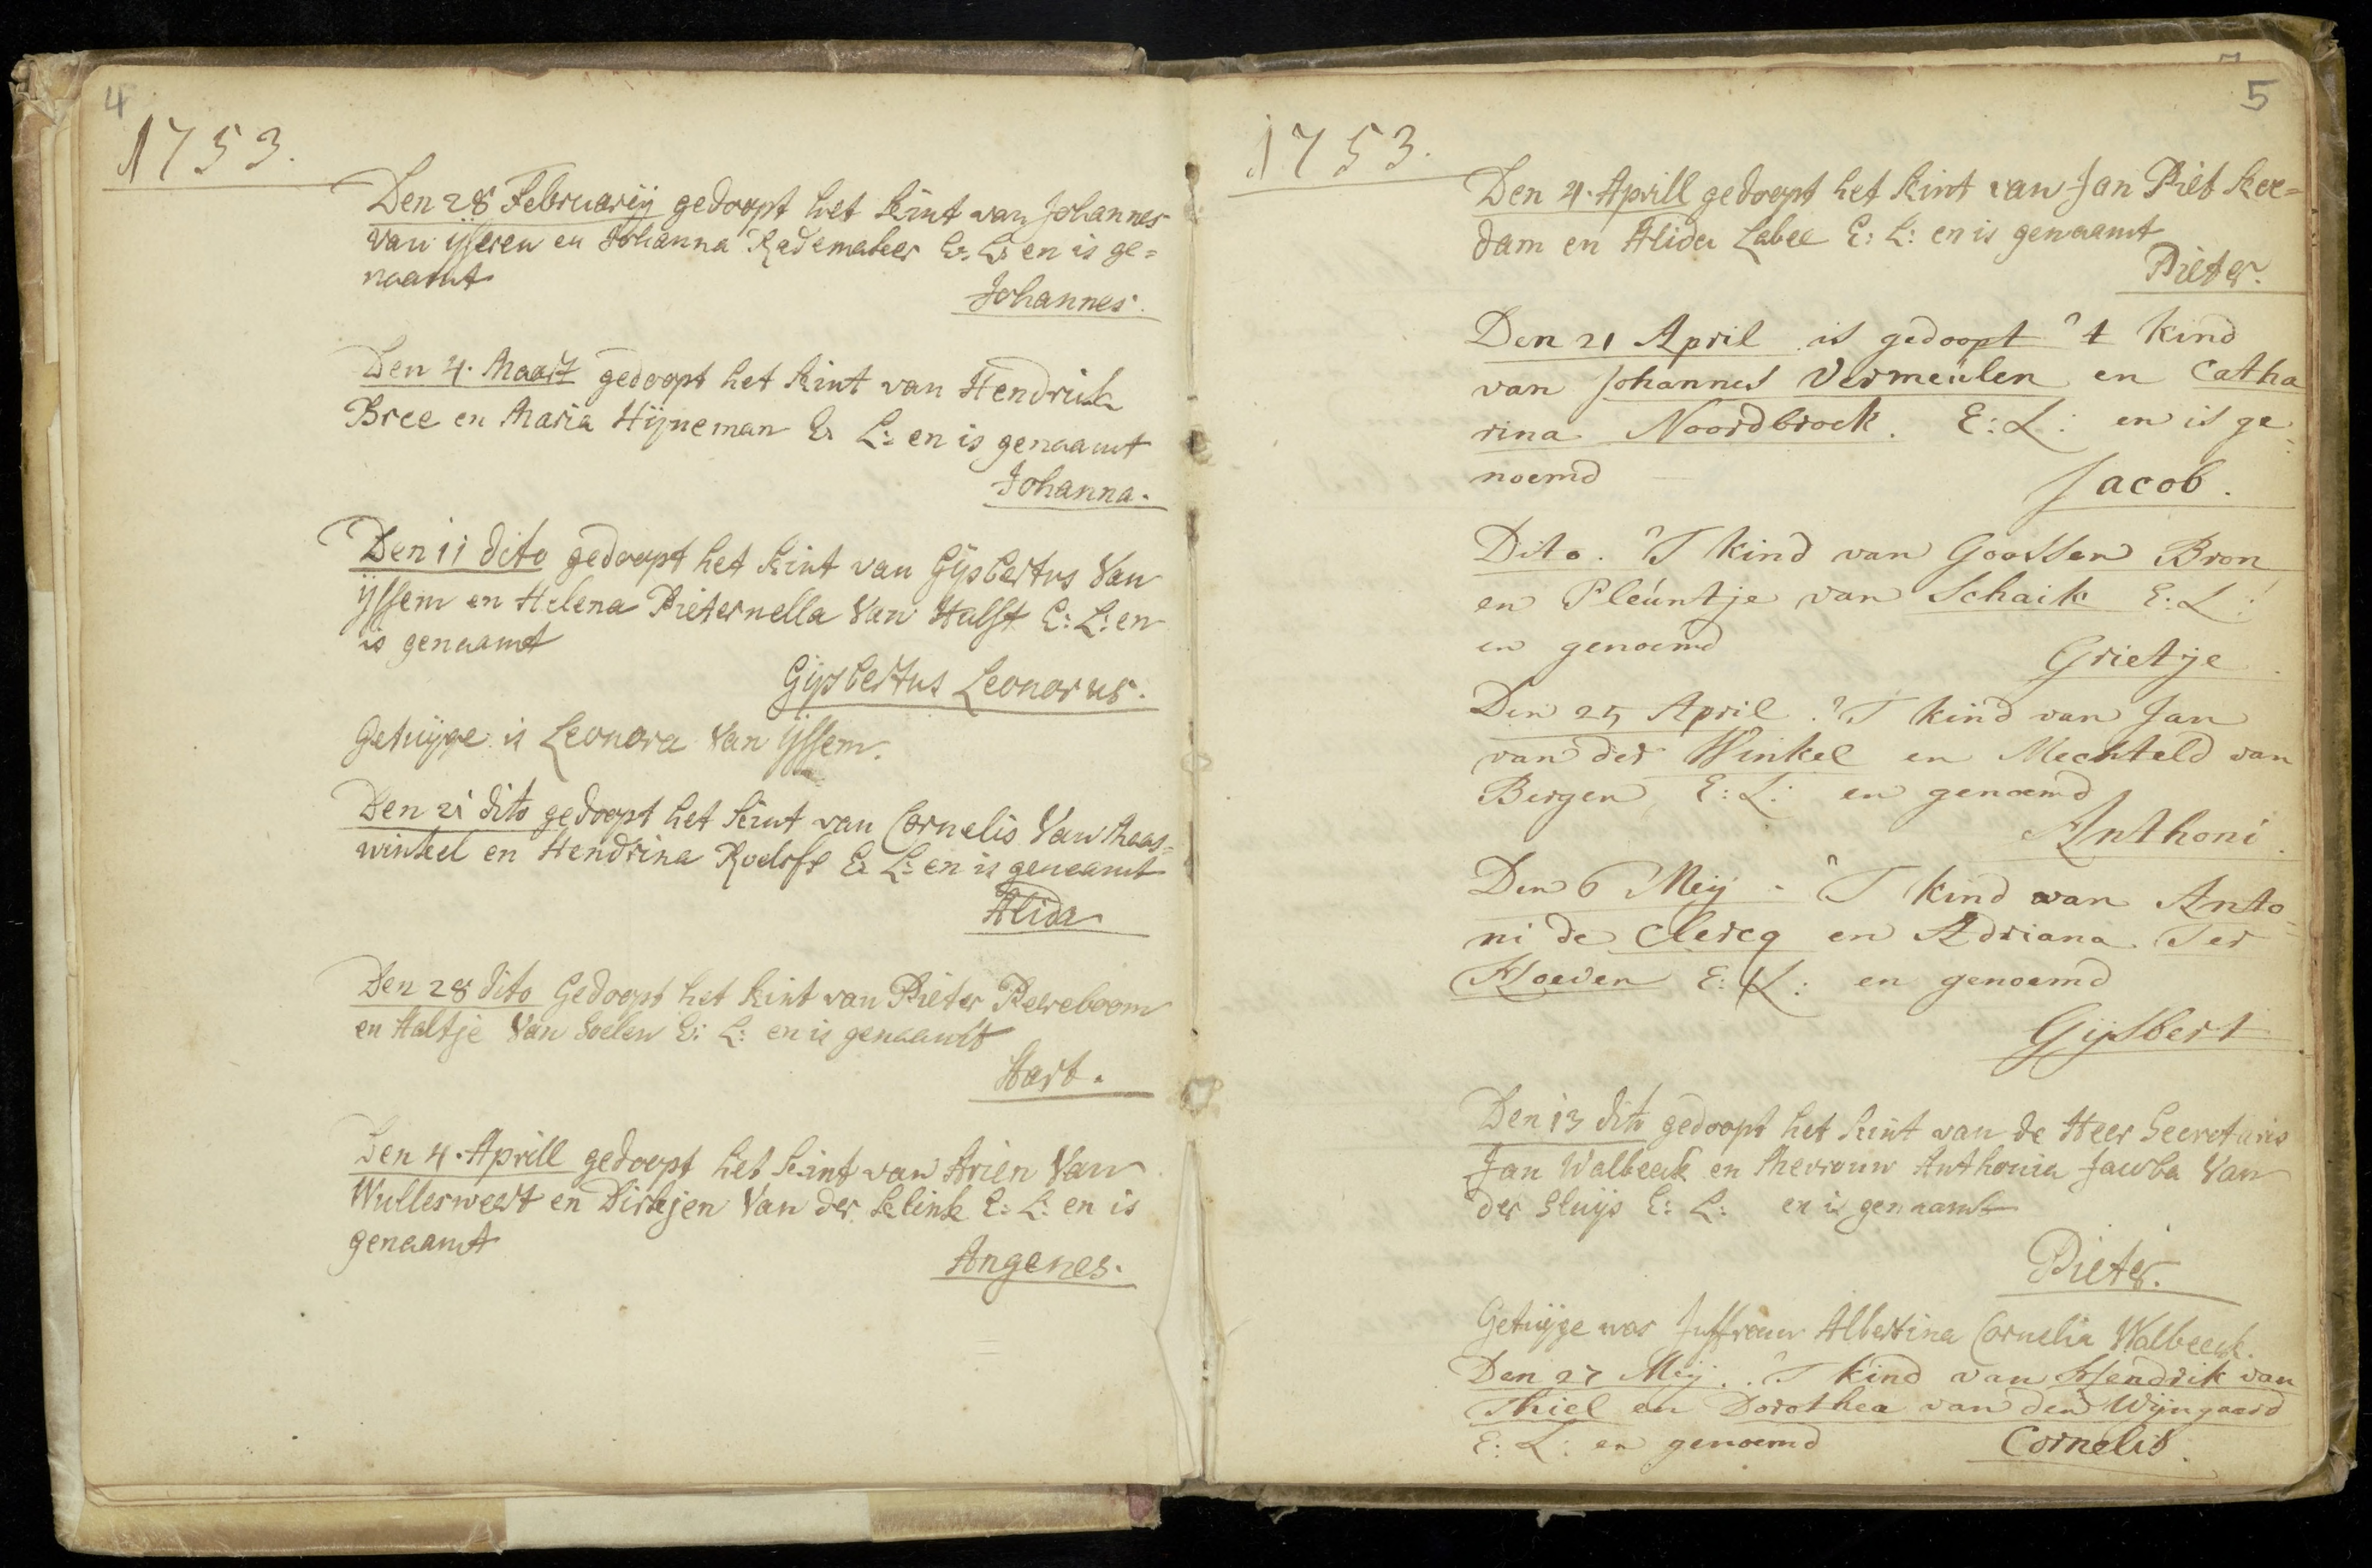 4
1753.
Den 28 Februarij gedoopt het kint van Johannes
van ijseren en Johanna Rademaker E: L: en is ge=
naamt
Johannes.
Den 4. Maart gedoopt het kint van Hendrick
Bree en Maria Hijneman E: L: en is genaamt
Johanna.
Den 11 dito gedoopt het kint van Gijsbertus Van
ijssem en Helena Pieternella Van Hulst E: L: en
is genaamt
Gijsbertus Leonorus.
Getuijge is Leonora Van ijssem.
Den 21 dito gedoopt het kint van Cornelis Van Maas=
winkel en Hendrina Roelofs E: L: en is genaamt
Alida
Den 28 dito Gedoopt het kint van Pieter Pereboom
en Aaltje Van Soelen E: L: en is genaamt
Aart.
Den 4. Aprill gedoopt het kint van Arien Van
Wulleswert en Dirkjen Van der Klink E: L: en is
genaamt
Angenes.
5
1753.
Den 4. Aprill gedoopt het kint van Jan Piet Kee=
dam en Alida Labee E: L: en is genaamt
Pieter.
Den 21 April is gedoopt 't kind
van Johannes Vermeulen en Catha
rina Noordbroek. E: L: en is ge=
noemd
Jacob.
Dito. 'T kind van Goossen Bron
en Pleuntje van Schaik E: L:
en genoemd
Grietje.
Den 25 April. 'T kind van Jan
van der Winkel en Mechteld van
Bergen E: L: en genoemd
Anthoni.
Den 6 Meij. 'T kind van Anto=
ni de Clercq en Adriana Ter
Hoeven E: L: en genoemd
Gijsbert
Den 13 dito gedoopt het kint van de Heer Secretaris
Jan Walbeeck en Mevrouw Anthonia Jacoba Van
der Sluijs E: L: en is genaamt
Pieter.
Getuijge was Juffrouw Albertina Cornelia Walbeeck.
Den 27 Meij. 'T kind van Hendrik van
Thiel en Dorothea van den Wijngaard
E: L: en genoemd Cornelis.